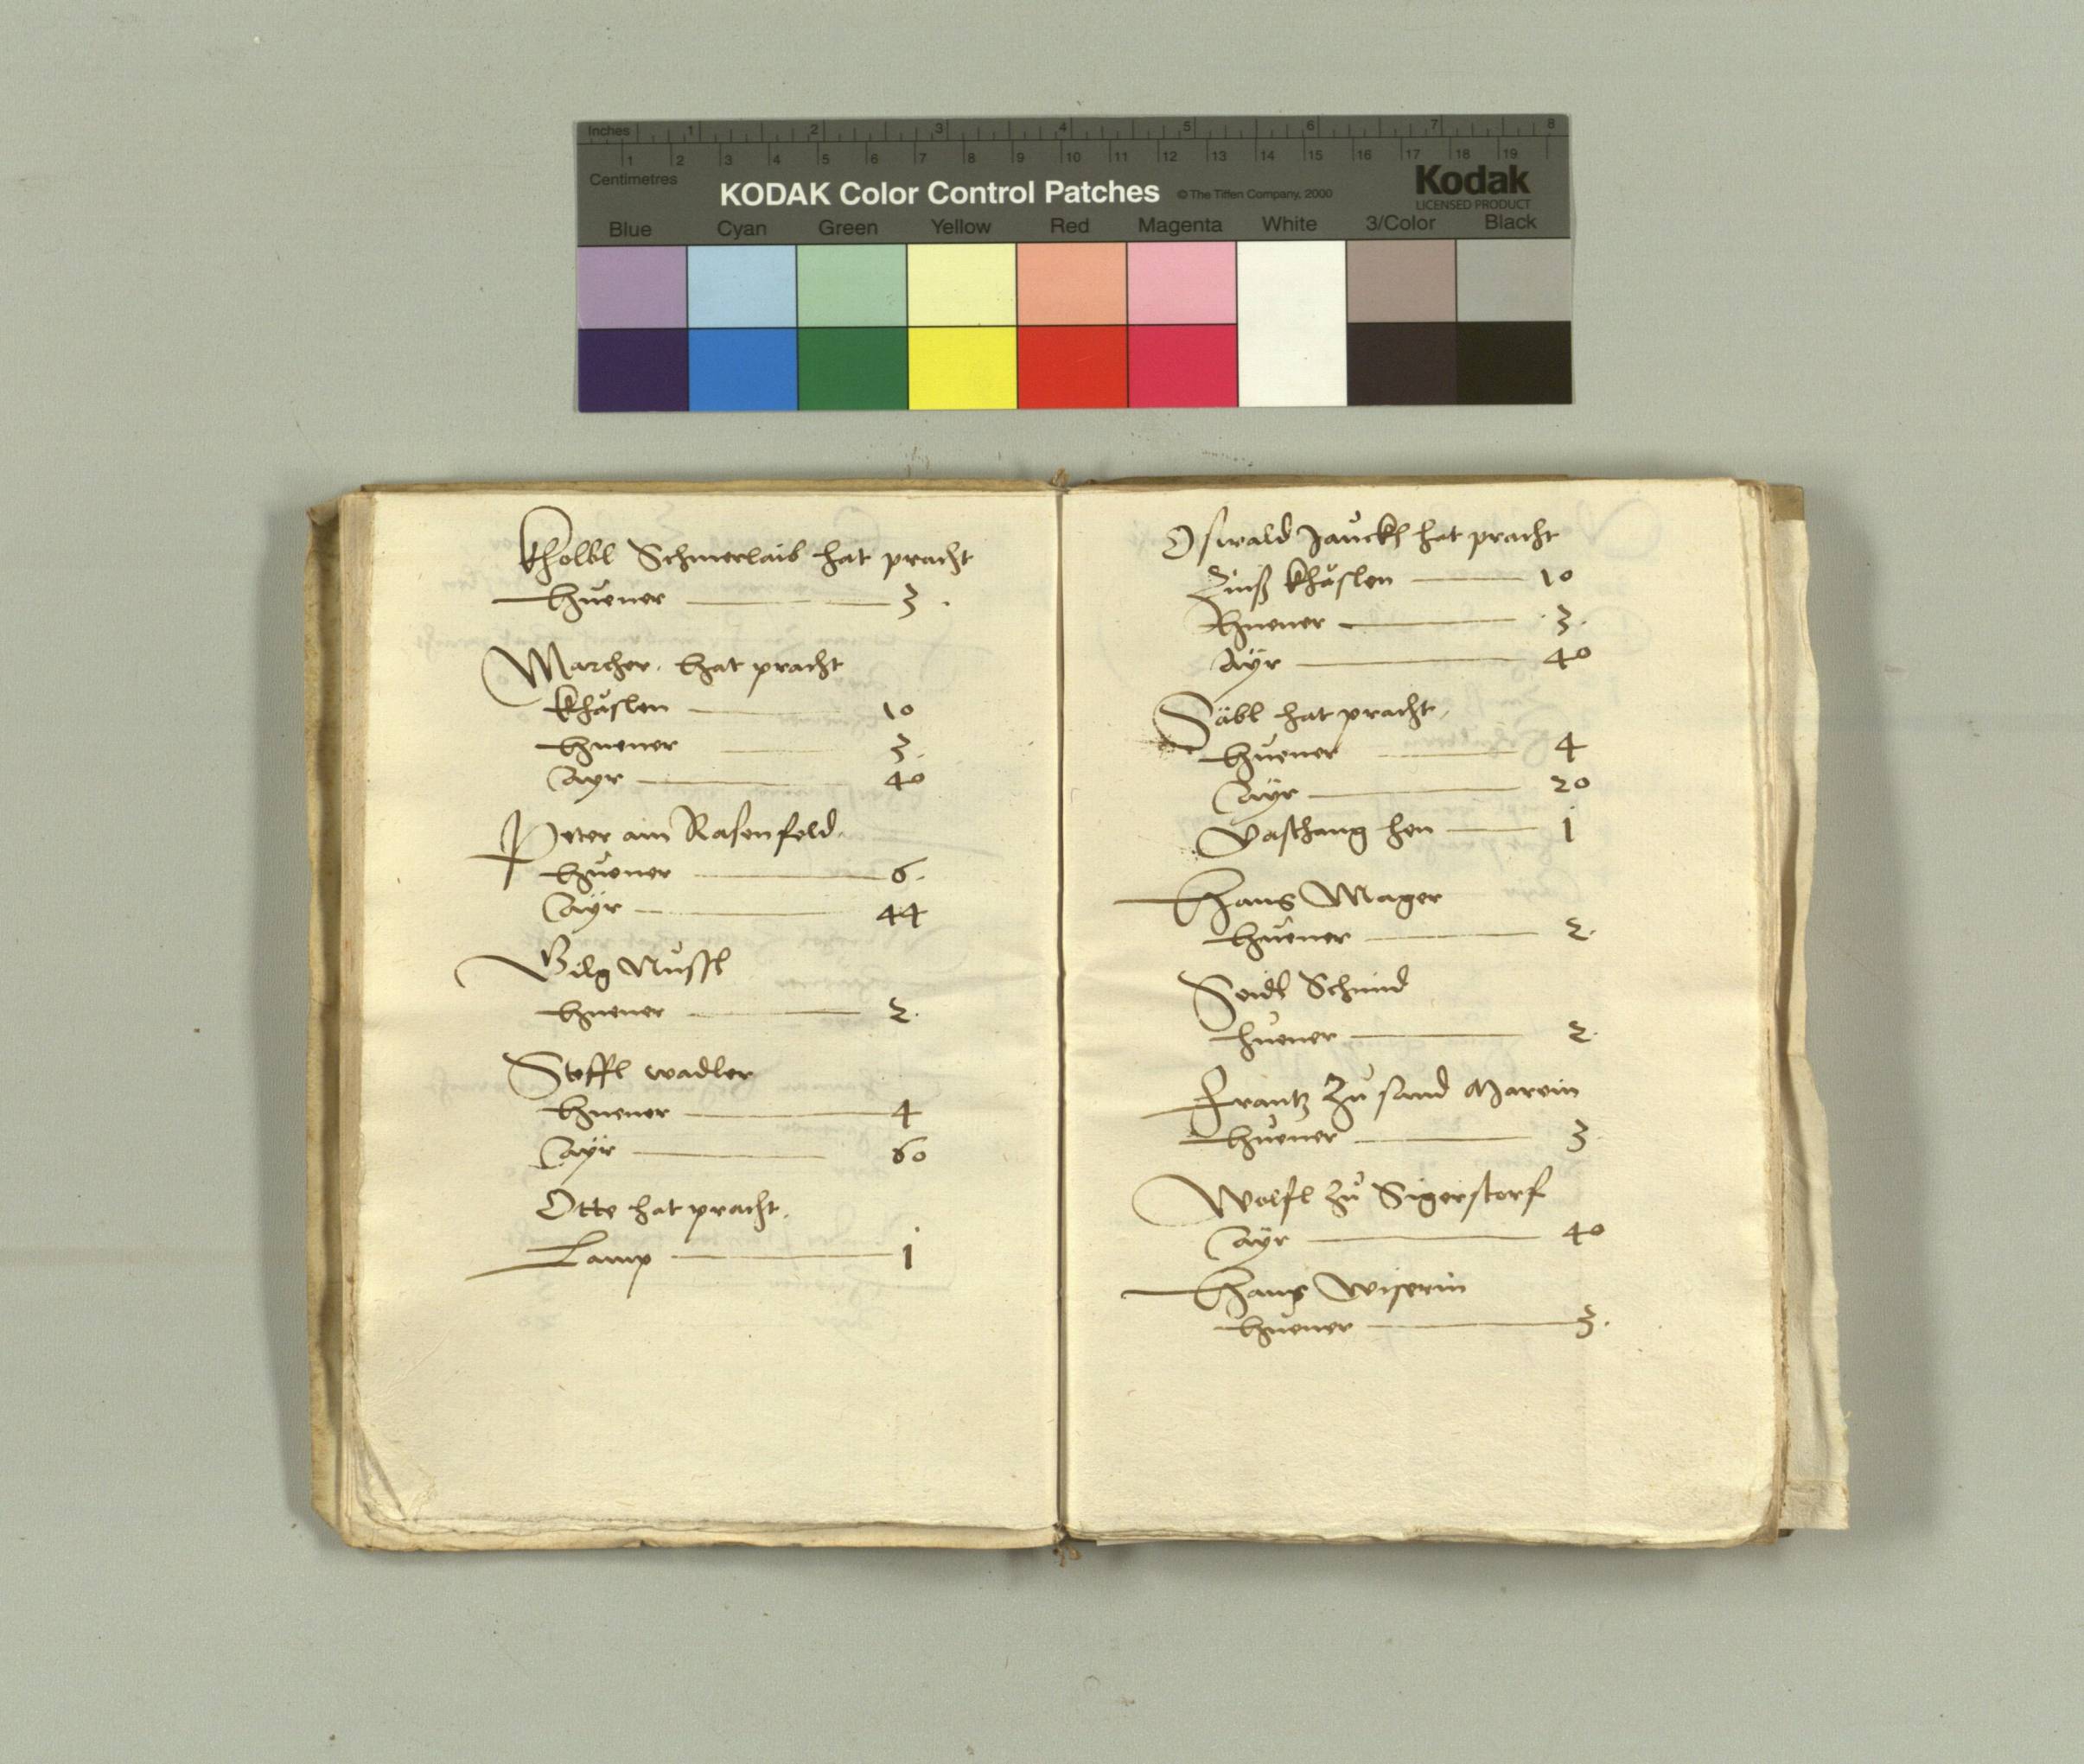 Inches 1 2 3 4 5 6 7 8
1 2 3 4 5 6 7 8 9 10 11 12 13 14 15 16 17 18 19
Centimetres
KODAK Color Control Patches © The Tiffen Company, 2000 Kodak
LICENSED PRODUCT
Blue Cyan Green Yellow Red Magenta White 3/Color Black
Kholbl Schmerlaib hat pracht
huener 3.
Marcher hat pracht
khäslen 10
huener 3.
Ayr 40
Peter am Rasenfeld.
hůener 6.
Aÿr 44
Gilg Nůssl
huener 2.
Steffl wadler
huener 4
Aÿr 60
Otte hat pracht.
Lamp 1
Oswald Jaůckh hat pracht
Zinß khäslen 10
Huener 3.
Aÿr 40
Säbl hat pracht.
hůener 4
Aÿr 20
Vaschang hen 1
Hans Mager
hůener 2.
Seidl Schmid
hůener 2.
Frantz zů sand Marein
hůener 3
Wolfl zů Sigerstorf
Aÿr 40
Hans Wiserin
hůener 3.